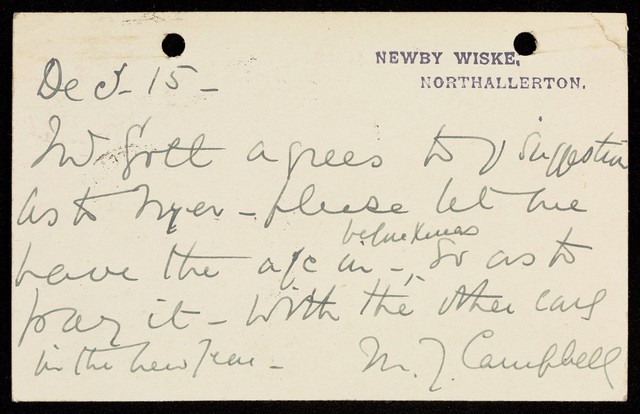 NEWBY WISKE,
NORTHALLERTON.
Dec 15 -
Mr Gott agrees to y suggestion
as to Myer - please let me
have the a/c in before Xmas -, so as to
pay it - with the other cars
in the new year -
M. J. Campbell